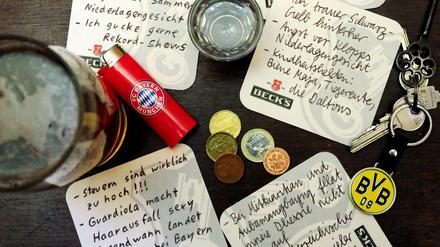 Sommer
Niederlagengesicht
- Ich gucke gerne
Rekord-Shows
In trauer Schwarz-
Gelb hinterher
- Angst vor Klopps
Niederlagengesicht
- Kindheitshelden:
Biene Maja, Tigerente,
die Daltons
BECK'S
BECK'S
FC BAYERN
MÜNCHEN
- Steuern sind wirklich
zu hoch!!!
- Guardiola macht
Haarausfall sexy
landet
bei Bayern
Bei Mkhitaryan und
Aubameyang fällt
nicht
BVB
09